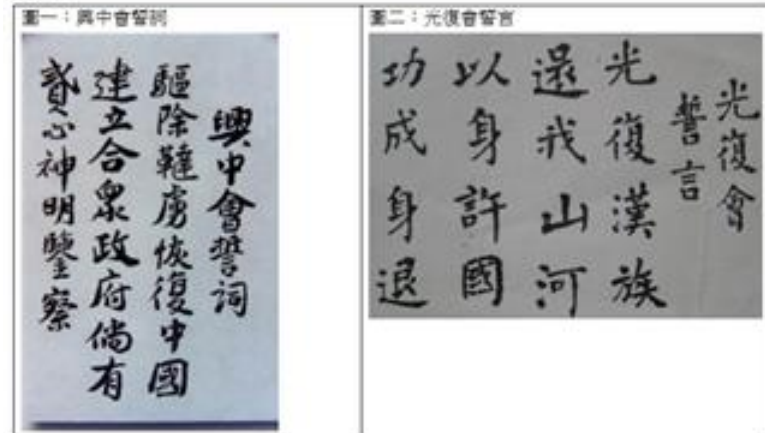 圖一：興中會誓詞
興中會誓詞
驅除韃虜恢復中國
建立合眾政府倘有
貳心神明鑒察
圖二：光復會誓言
光復會
誓言
光復漢族
還我山河
以身許國
功成身退